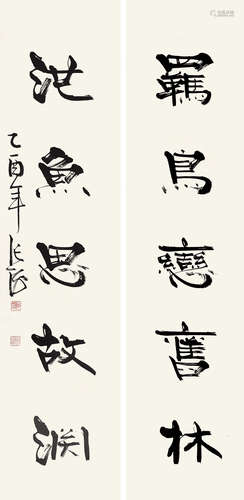 羈鳥戀舊林
池魚思故淵
乙酉年